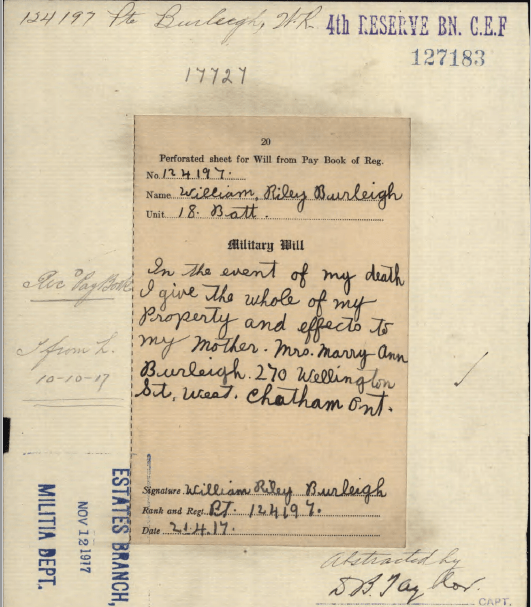 124197 Pte Burleigh, W.R.
4th RESERVE BN. C.E.F
127183
17727
20
Perforated sheet for Will from Pay Book of Reg.
No. 124197.
Name William, Riley Burleigh
Unit 18. Batt.
Military Will
In the event of my death
I give the whole of my
Property and effects to
my Mother. Mrs. Marry Ann
Burleigh. 270 Wellington
St, West. Chatham Ont.
Signature William Riley Burleigh
Rank and Regt. PT. 124197.
Date 21.4.17.
Rec'd Pay Book
from L.
10-10-17
ESTATES BRANCH,
NOV 12 1917
MILITIA DEPT.
Abstracted by
D.B. Taylor.
CAPT.